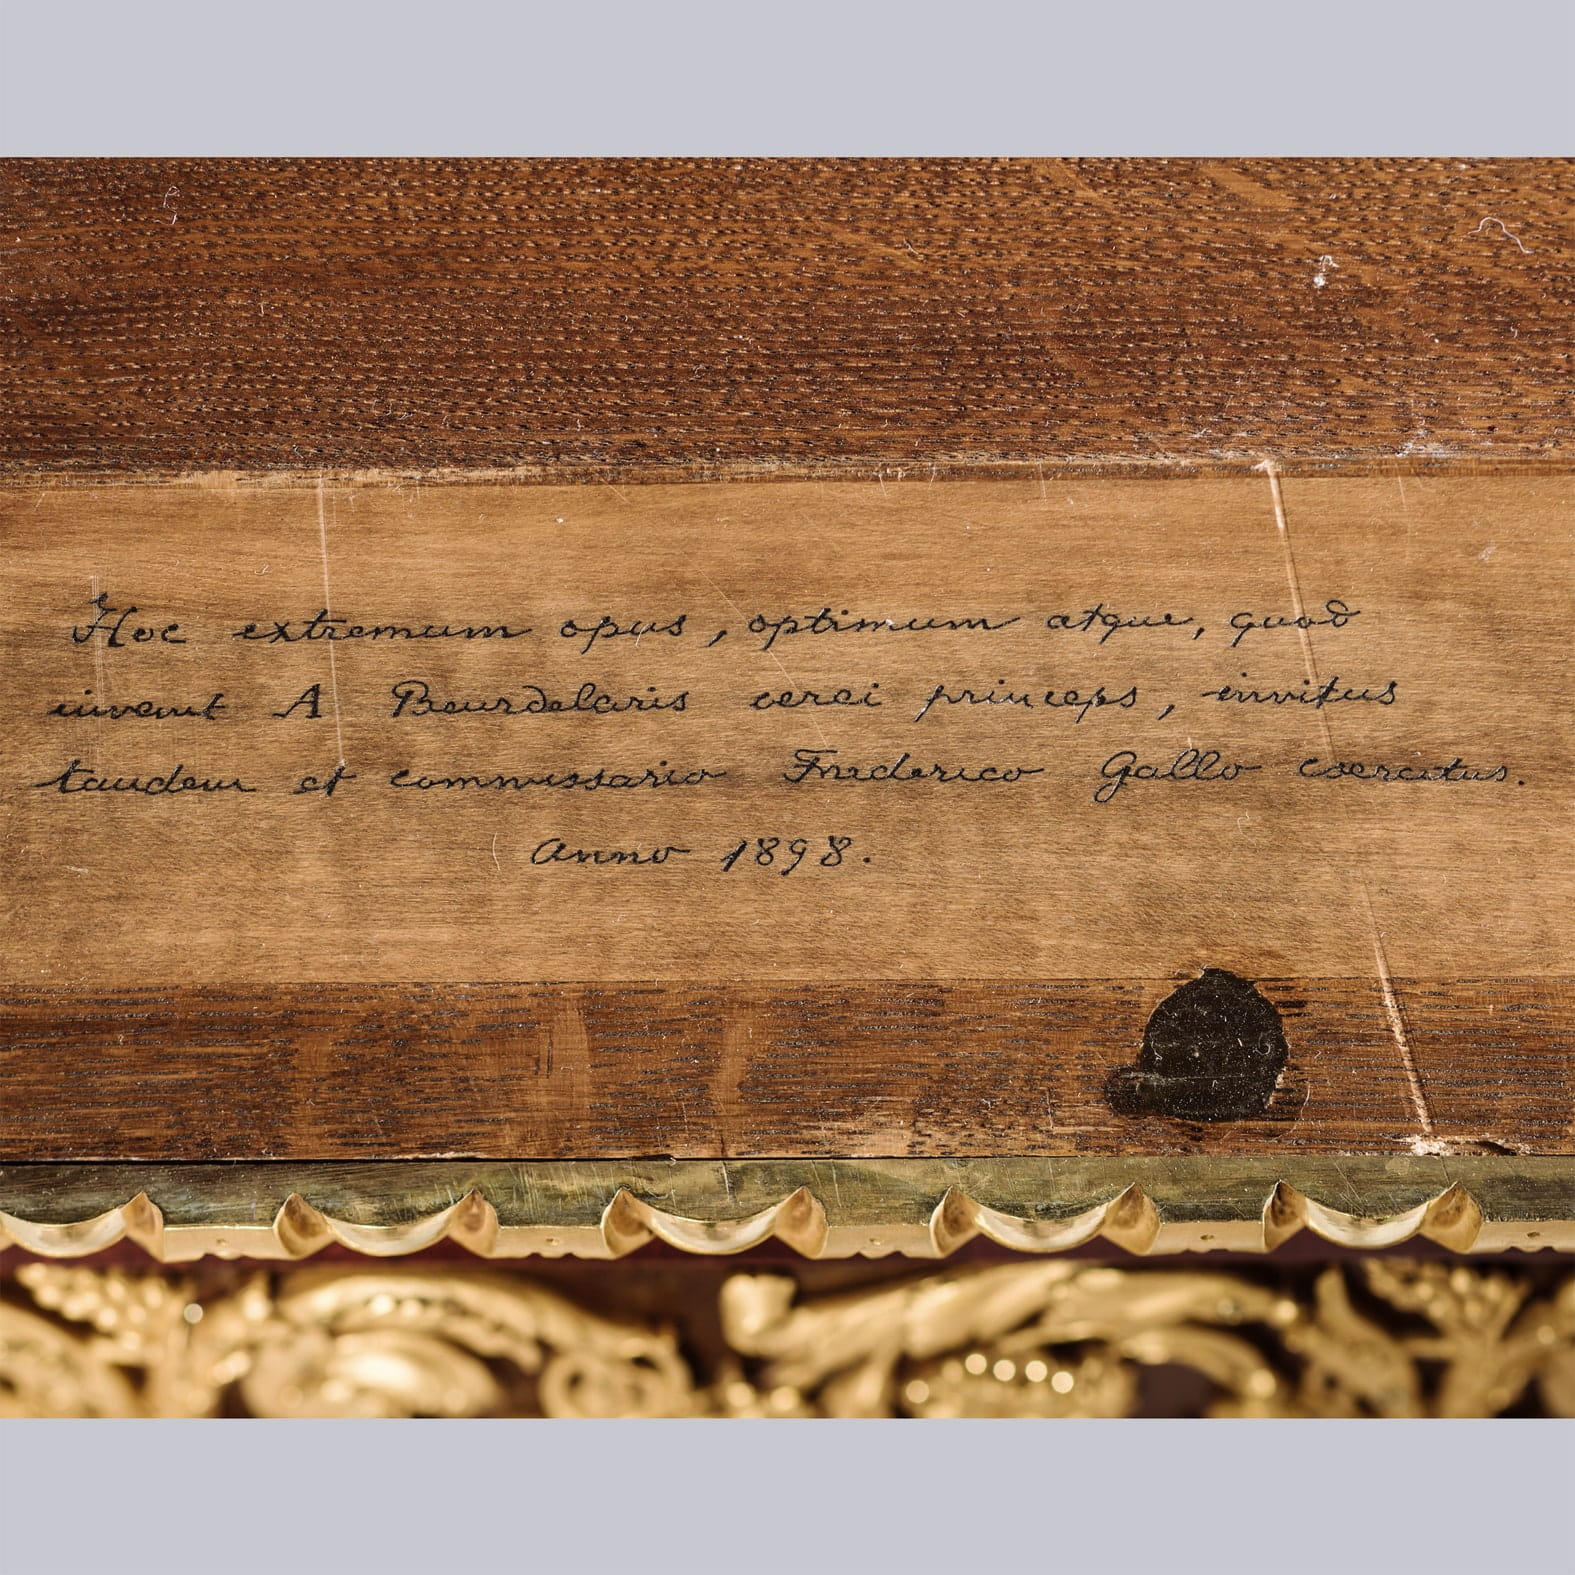 Hoc extremum opus, optimum atque, quod
invenit A Beurdelaris cerei princeps, invitus
tandem et commissario Frederico Gallo coercitus.
Anno 1898.